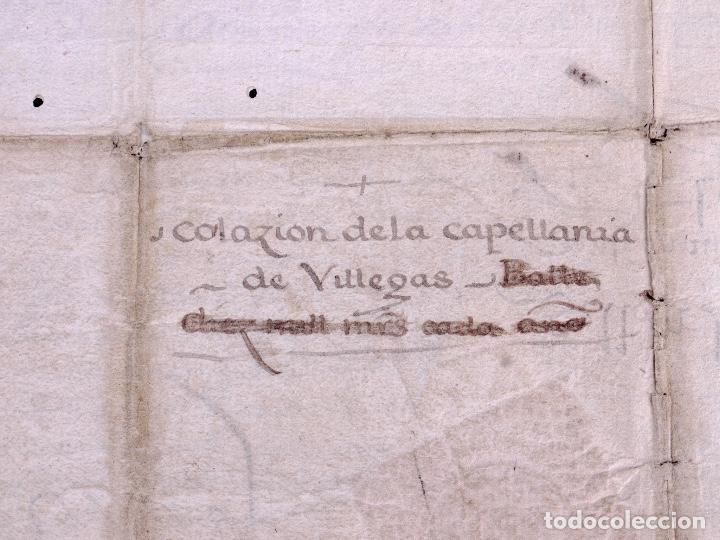 +
colazion dela capellania
de Villegas Balle
Diez mill mrs cada año
todocoleccion.net